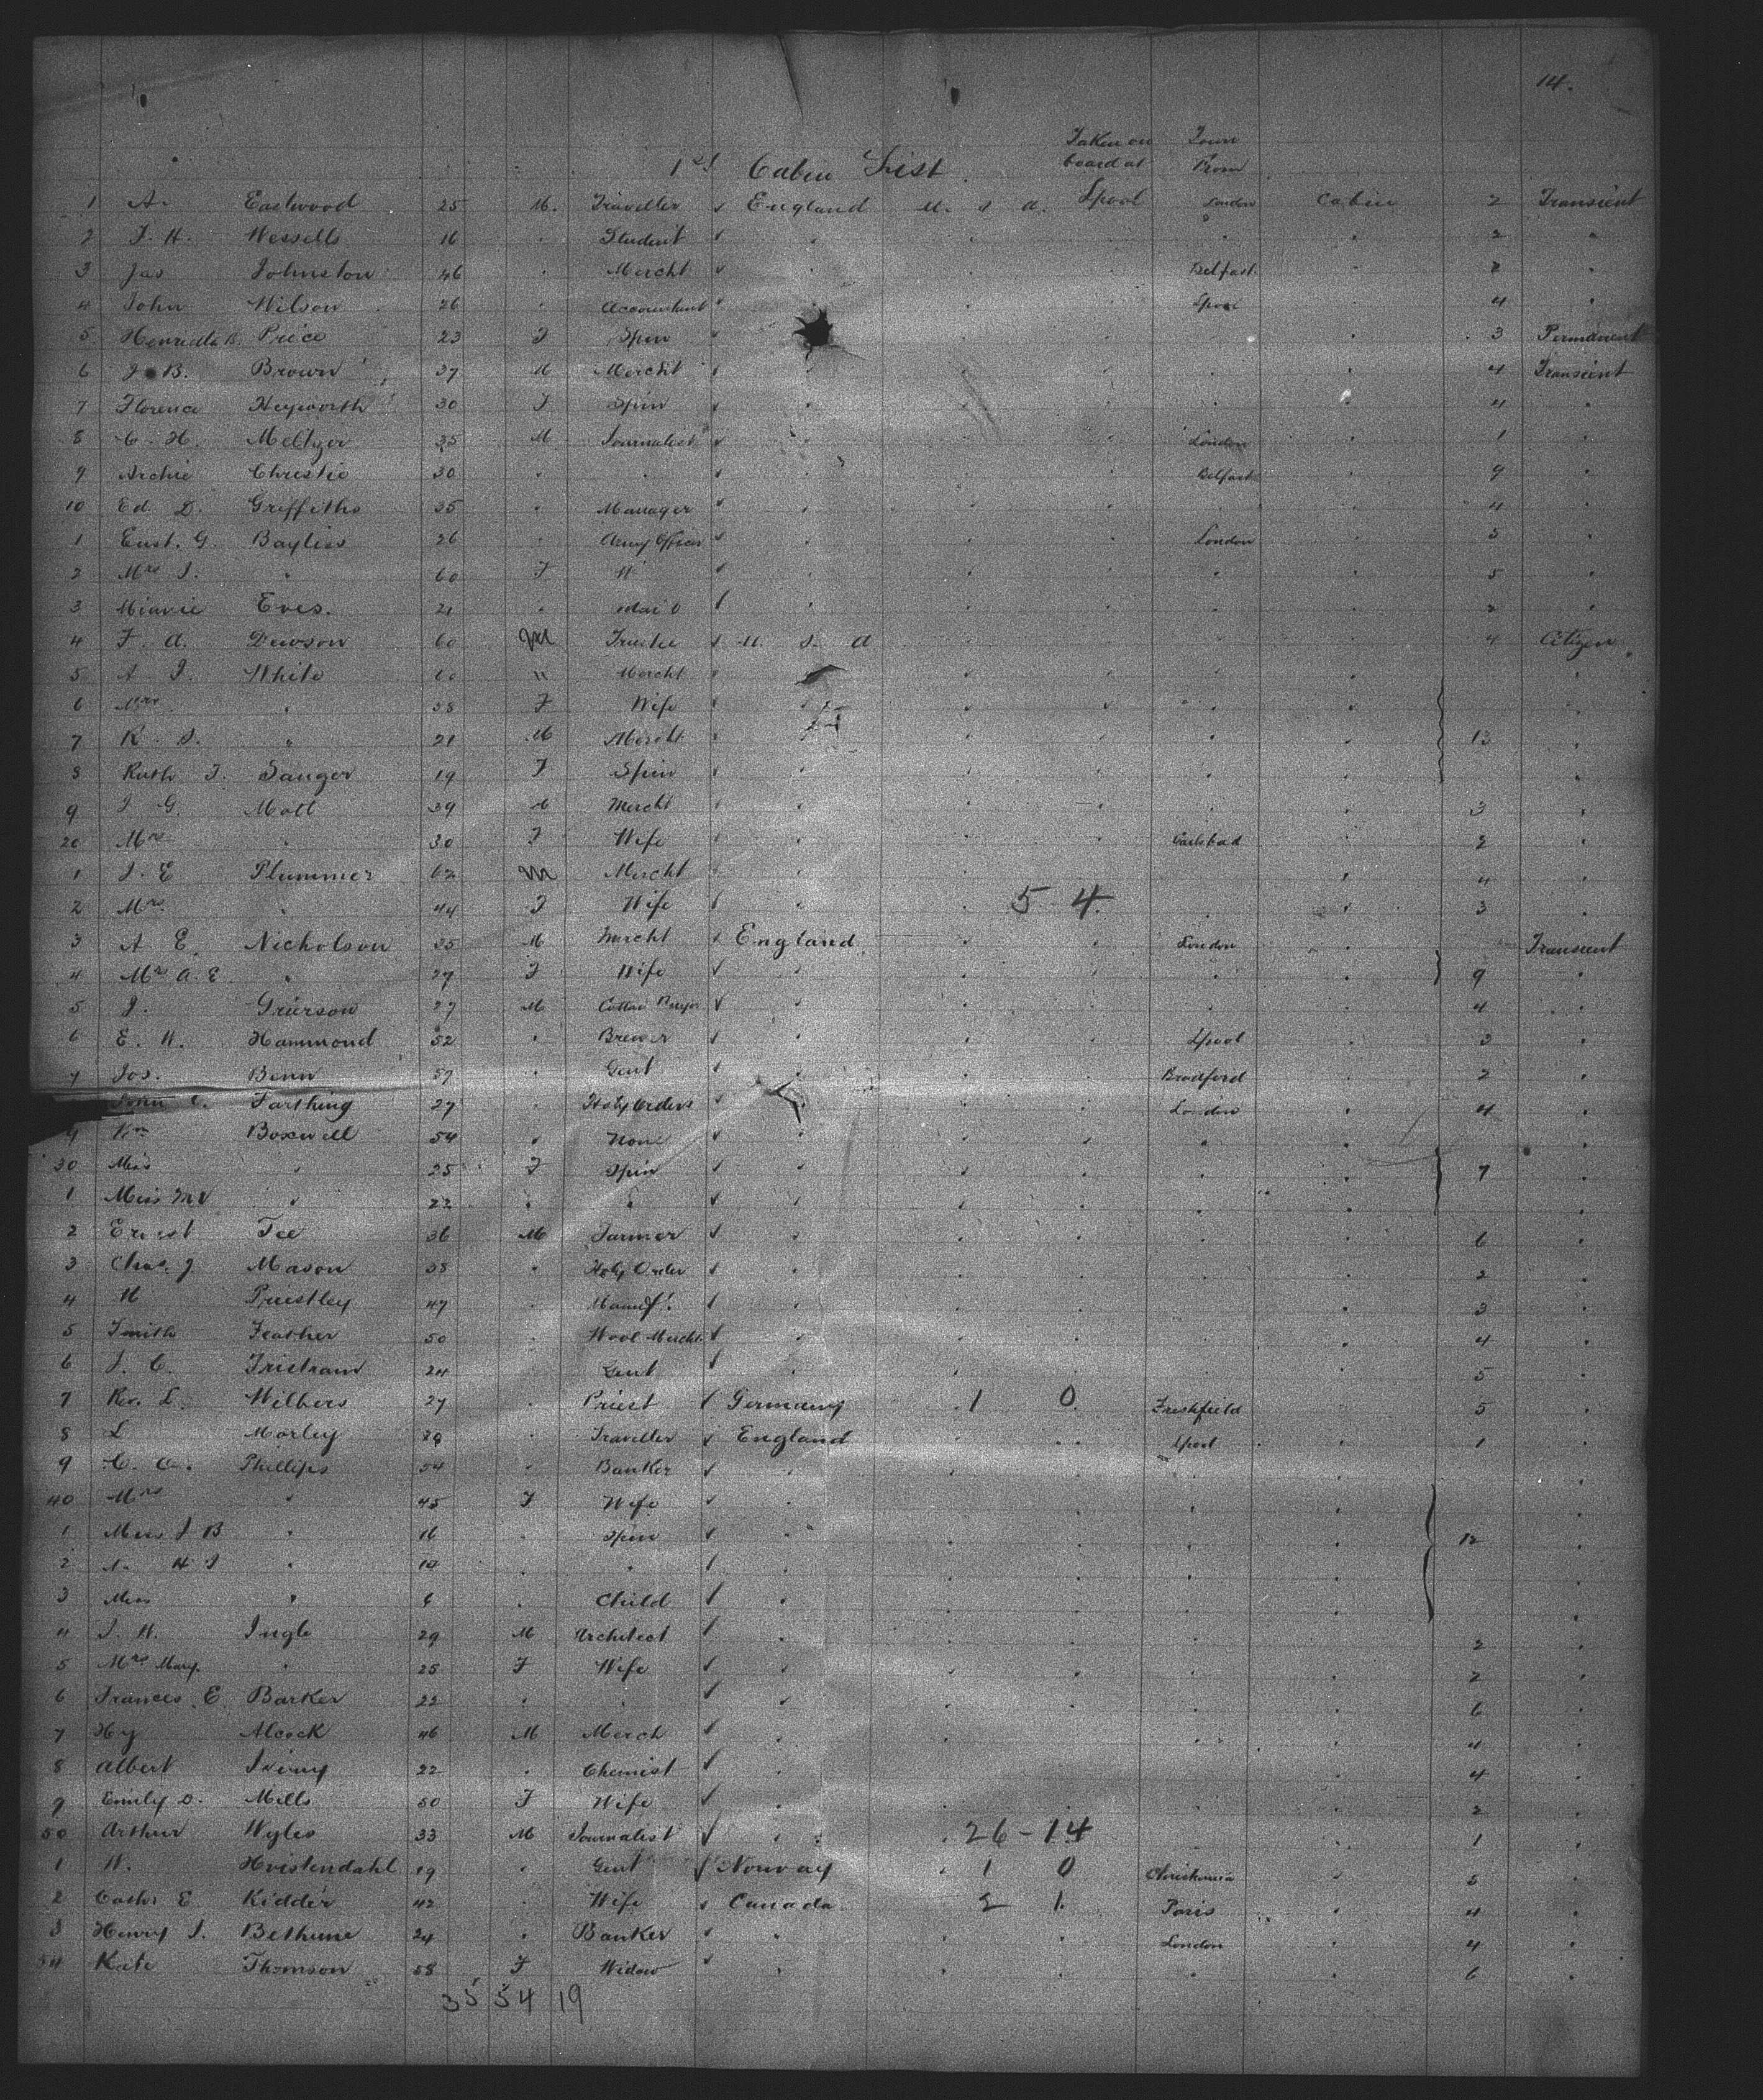 14.
Taken on Town
1st Cabin List board at From
1 A. Eastwood 25 M. Traveller ✓ England U. S. A. Lpool London Cabin 2 Transient
2 J. H. Wessells 16 " Student ✓ " " " " " 2 "
3 Jas Johnston 46 " Mercht ✓ " " " Belfast " 2 "
4 John Wilson 26 " Accountant ✓ " " Lpool " 4 "
5 Henrietta B. Price 23 F Spin 3 Permanent
6 J. B. Brown 37 M Mercht ✓ " " " " " 4 Transient
7 Florence Heyworth 30 F Spin ✓ " " " " " 4 "
8 C. H. Meltzer 35 M Journalist ✓ " " " London " 1 "
9 Archie Christie 30 " " ✓ " " " Belfast " 9 "
10 Ed. D. Griffiths 35 " Manager ✓ " " " " " 4 "
1 Eust. G. Bayliss 26 " Army Officer ✓ " " " London " 5 "
2 Mrs J. " 60 F W ✓ " " " " " 5 "
3 Minnie Eves. 21 " Maid ✓ " " " " " 2 "
4 F. A. Dewson 60 M ✓ U. S. A 4 Citizen
5 A J. White 60 " Mercht ✓ " " " " "
6 Mrs " 58 F Wife ✓ " " " " "
7 R. S. " 21 M Mercht ✓ " " " " 13 "
8 Ruth F. Sanger 19 F Spin ✓ " " " " " "
9 J G. Mott 39 M Mercht ✓ " " " " " 3 "
20 Mrs " 30 F Wife ✓ " " " Carlsbad " 2 "
1 J. E Plummer 62 M Mercht ✓ " " 4 "
2 Mrs " 44 F Wife ✓ " " 5 - 4 " " 3 "
3 A E. Nicholson 35 M Mercht ✓ England " " London " Transient
4 Mrs A. E " 27 F Wife ✓ " " " " " 9 "
5 J. Grierson 27 M Cotton Buyer ✓ " " " " " 4 "
6 E. W. Hammond 52 " Brewer ✓ " " " Lpool " 3 "
7 Jos. Benn 57 " Gent ✓ " " " Bradford " 2 "
John C. Farthing 27 " Holy Orders ✓ " " " London " 4 "
9 Wm Boxwell 54 " None ✓ " " " " " "
30 Miss " 25 F Spin ✓ " " " " " 7 "
1 Miss M V " 22 " " ✓ " " " " " "
2 Ernest Tee 36 M Farmer ✓ " " " " " 6 "
3 Chas. J. Mason 38 " Holy Order ✓ " " " " " 2 "
4 H Priestley 47 " Manuf. ✓ " " " " " 3 "
5 Smith Feather 50 " Wool Mercht. ✓ " " " " " 4 "
6 J. C. Tristram 24 " Gent ✓ " " " " " 5 "
7 Rev. L. Wilbers 27 " Priest ✓ Germany " 1 0. Freshfield " 5 "
8 L Morley " Traveller ✓ England " " Lpool " 1 "
9 C. A. Phillips 54 " Banker ✓ " " " " " "
40 Mrs " 45 F Wife ✓ " " " " " "
1 Miss J B " 16 " Spin ✓ " " " " " 12 "
2 " H J " " " ✓ " " " " " "
3 Miss " 6 " Child ✓ " " " " " "
4 J. H. Ingle 29 M Architect ✓ " " " " " 2 "
5 Mrs Mary. " 25 F Wife ✓ " " " " " 2 "
6 Frances E. Barker 22 " " ✓ " " " " " 6 "
7 Hy Alcock 46 M Merch ✓ " " " " " 4 "
8 Albert 22 " Chemist ✓ " " " " " 4 "
9 Emily Mills 50 F Wife ✓ " " " " " 2 "
50 Arthur Wyles 33 M Journalist ✓ " " 26 - 14 " 1 "
1 W. Hvistendahl 19 " Gent ✓ Norway " 1 0 Christiania " 5 "
2 Cathr E Kidder 42 " Wife ✓ Canada. 2 1. Paris " 4 "
3 Henry J. Bethune 24 " Banker ✓ " " " London " 4 "
54 Kate Thomson 58 F Widow ✓ " " " " " 6 "
35 54 19